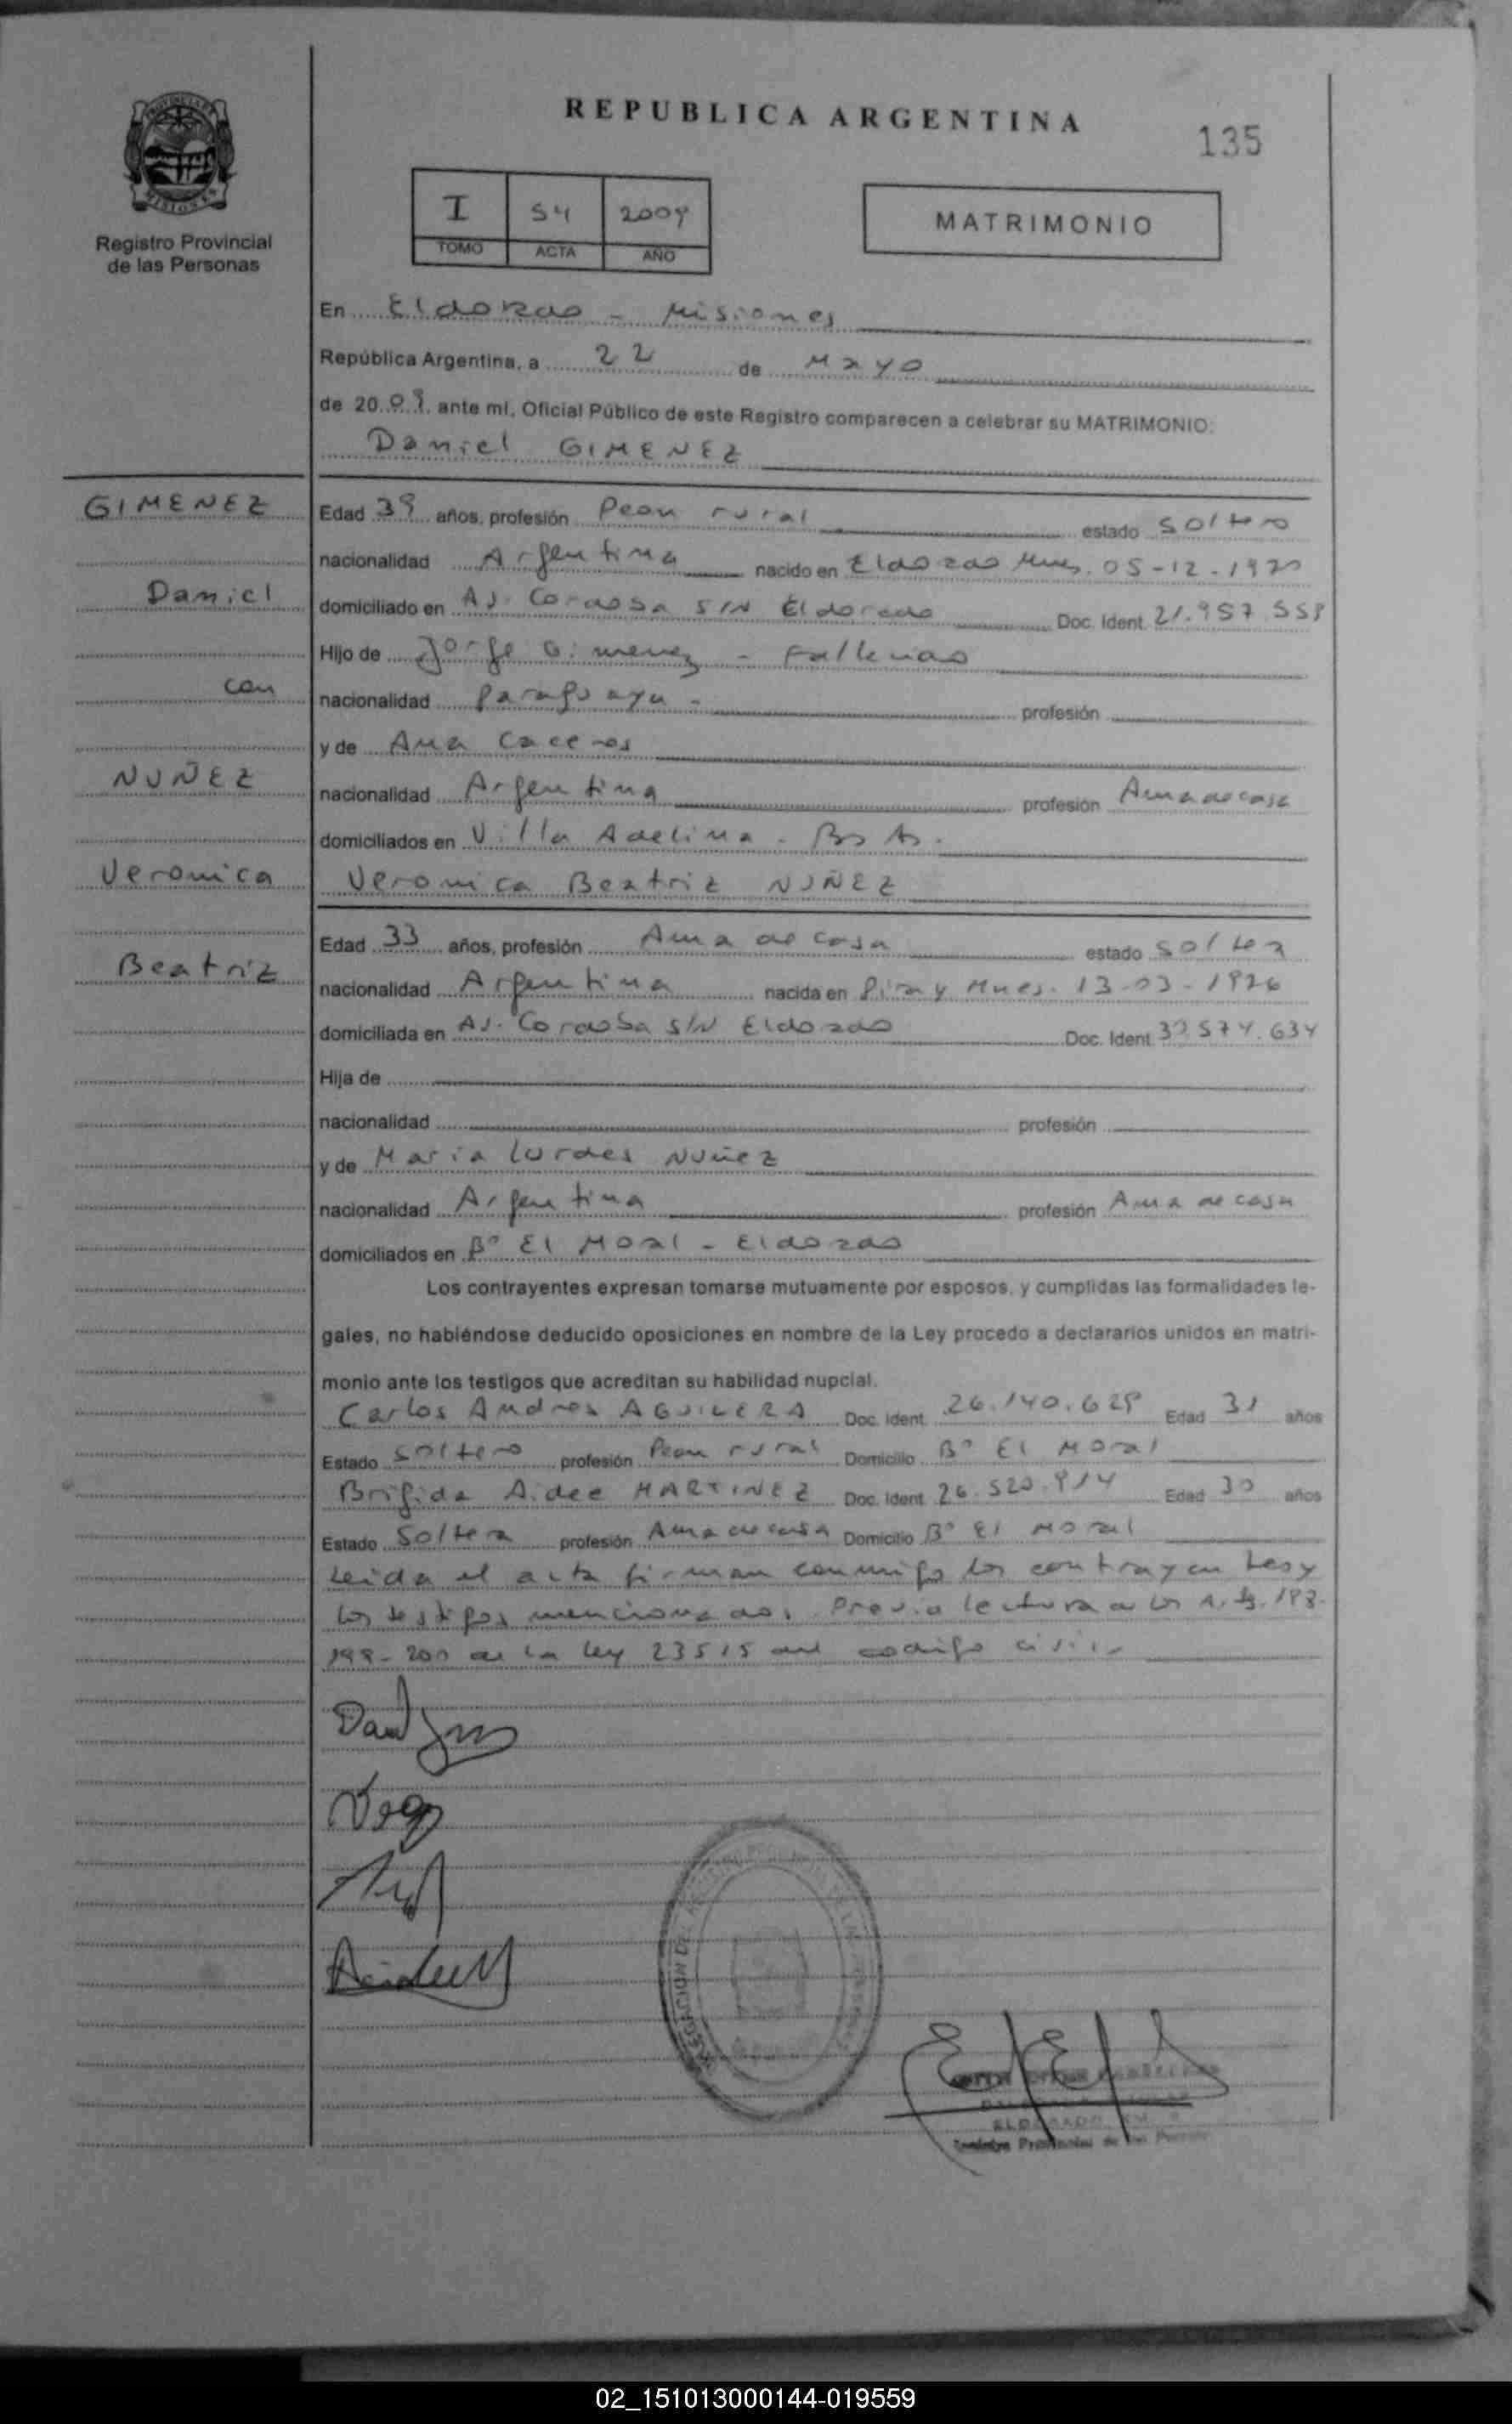 REPUBLICA ARGENTINA
135
MISIONES
Registro Provincial
de las Personas
I 54 2009
TOMO ACTA AÑO
MATRIMONIO
En Eldorado - Misiones
República Argentina, a 22 de Mayo
de 20 09 ante mi, Oficial Público de este Registro comparecen a celebrar su MATRIMONIO:
Daniel GIMENEZ
GIMENEZ
Daniel
con
NUÑEZ
Veronica
Beatriz
Edad 39 años, profesión Peon rural estado soltero
nacionalidad Argentina nacido en Eldorado Mnes. 05-12-1970
domiciliado en Av. Cordoba S/N Eldorado Doc. Ident. 21.957.
Hijo de Jorge Gimenez - Fallecido
nacionalidad Paraguaya - profesión
y de Ana Caceres
nacionalidad Argentina profesión Ama de casa
domiciliados en Villa Adelina - Bs As.
Veronica Beatriz NUÑEZ
Edad 33 años, profesión Ama de casa estado soltera
nacionalidad Argentina nacida en Piray Mnes. 13-03-1976
domiciliada en Av. Cordoba S/N Eldorado Doc. Ident.
Hija de
nacionalidad profesión
y de Maria Lurdes Nuñez
nacionalidad Argentina profesión Ama de casa
domiciliados en B° El Moral - Eldorado
Los contrayentes expresan tomarse mutuamente por esposos, y cumplidas las formalidades le-
gales, no habiéndose deducido oposiciones en nombre de la Ley procedo a declararlos unidos en matri-
monio ante los testigos que acreditan su habilidad nupcial.
Carlos Andres AGUILERA Doc. Ident. 26.140.629 Edad 31 años
Estado soltero profesión Peon rural Domicilio B° El Moral
Brigida Aidee MARTINEZ Doc. Ident. 26.520.914 Edad 30 años
Estado Soltera profesión Ama de casa Domicilio B° El Moral
Leida el acta firman conmigo los contrayentes y
los testigos mencionados. Previa lectura de los Art. 198-
199-200 de la Ley 23515 del codigo civil
ELDORADO
02_151013000144-019559